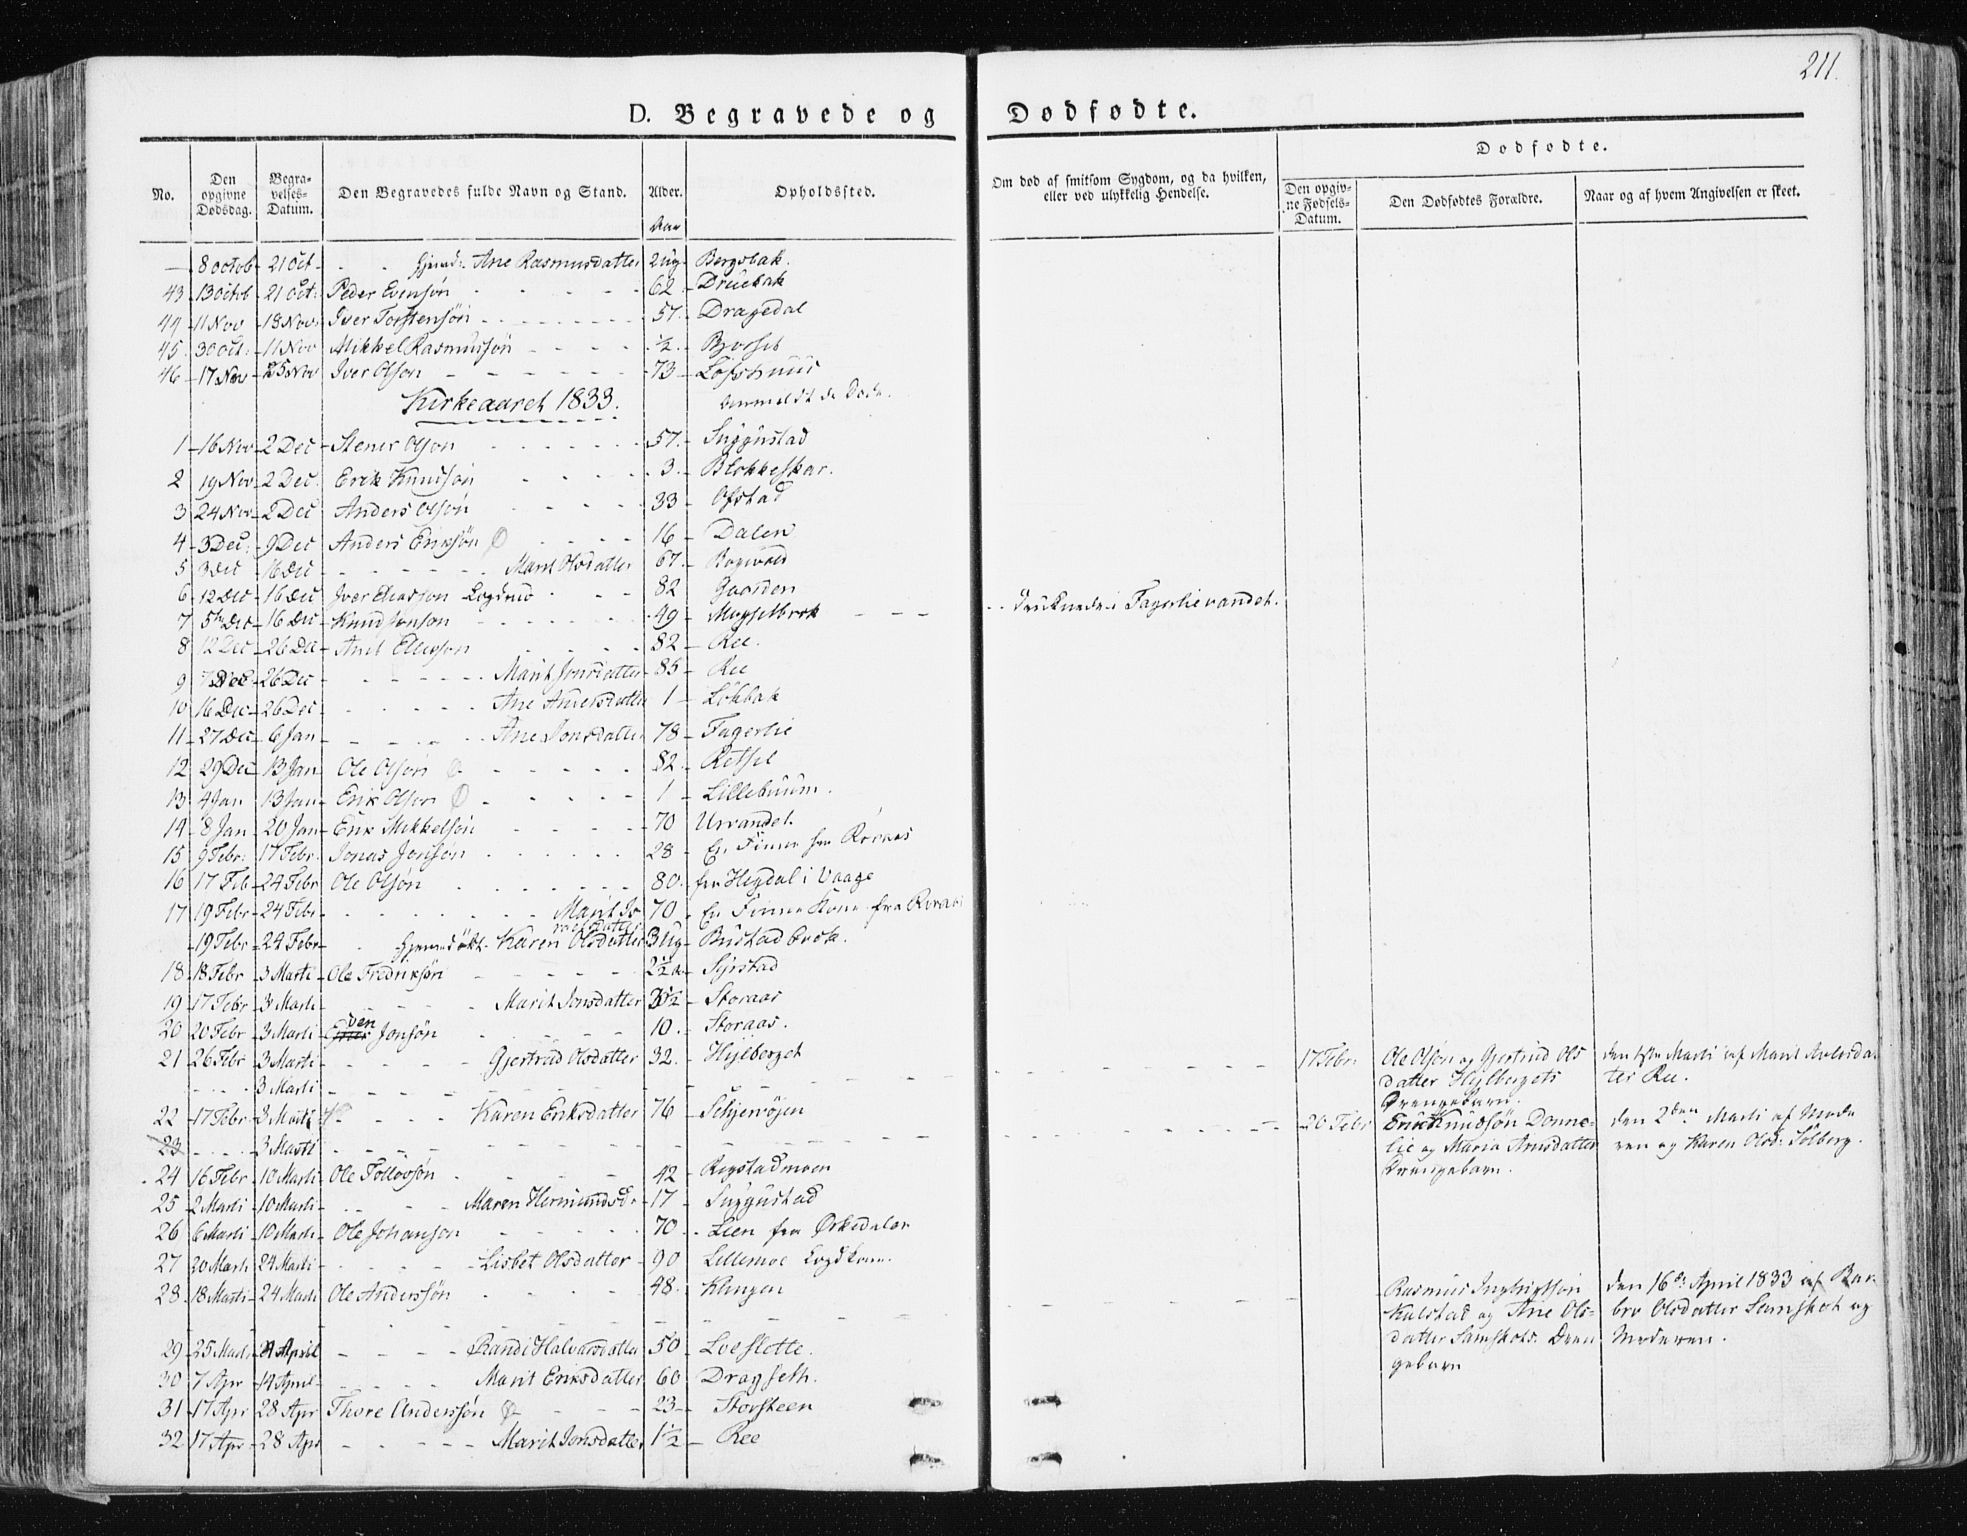 211.
D. Begravede og Dødfødte.
No.
Den opgivne Dødsdag.
Begravelses-Datum.
Den Begravedes fulde Navn og Stand.
Alder.
Opholdssted.
Om død af smitsom Sygdom, og da hvilken, eller ved ulykkelig Hendelse.
Dødfødte.
Den opgivne Fødsels-Datum.
Den Dødfødtes Forældre.
Naar og af hvem Angivelsen er skeet.
Aar
— 8 octob 21 Oct Hjemd: Ane Rasmusdatter 2 Ug Bergsbak.
43 13 Octob 21 Oct: Peder Evensøn 62 Druebak
44 11 Nov 18 Nov: Iver Torstensøn 57 Dragedal
45 30 Oct: 11 Nov Mikkel Rasmussøn ½ Bjorset
46 17 Nov 25 Nov Iver Olsøn 73 Løfshuus
Kirkeaaret 1833. anmeldt de Døde.
1 16 Nov 2 Dec Stener Olson 57 Snøgustad
2 19 Nov 2 Dec Erik Knudsøn 3 Blokkeskar.
3 24 Nov 2 Dec Anders Olsøn 33 Ofstad
4 3 Dec: 9 Dec Anders Eriksøn 16 Dalen
5 3 Dec 16 Dec Marit Olsdatter 67
6 12 Dec 16 Dec Iver Eliasson Logdmd 82 Gaarden
7 5te Dec 16 Dec Knud Jonsøn 49 Mogselbrek druknede i Fagerlievandet.
8 12 Dec 26 Dec Anit Ellevson 82 Ree.
9 7 Dec 26 Dec Marit Jonsdatter 85 Ree
10 16 Dec 26 Dec Ane Andersdatter 1 Løkbak
11 27 Dec 6 Jan Ane Jonsdatter 78 Fagerlie
12 29 Dec 13 Jan Ole Olsøn 82 Retsel
13 4 Jan 13 Jan Erik Olsen 1 Lillebuum.
14 8 Jan 20 Jan Erik Mikkelsøn 70 Urvandet.
15 9 Febr: 17 Febr: Jonas Jonsøn 28 En Finne fra Røraas
16 17 Feb 24 Febr Ole Olsøn 80 fra Hegdal i Vaage
17 19 Febr 24 Febr Marit Jo 70 En Finne Kone fra Røraas
19 Febr 24 Febr Hjemedøbt. Karen Olsdatter 3 Ug Bustadbrek.
18 18 Febr 3 Marti Ole Fredriksøn 2½ Syrstad
19 17 Febr 3 Marti Marit Jonsdatter 3½ Storaas
20 20 Febr 3 Marti Even Jonsøn 10 Storaas.
21 26 Febr 3 Marti Gjertrud Olsdatter 32. Hejlberget
17 Febr: Ole Olsøn og Gjertrud Ols
datter Hejlbergets
Drengebarn.
den 1ste Marti af Marit Andersdat
ter Ree.
3 Marti
22 17 Febr 3 Marti Karen Eriksdatter 76 Schjerøyen
20 Febr Erik Knudsøn Donne-
lie og Maria Arnsdatter
Drengebarn.
den 2den Marti af Mode
ren og Karen Olsd: Solberg.
23 3 Marti
24 16 Febr 10 Marti Ole Tollovsøn 42 Rygstadmoen
25 2 Marti 10 Marti Maren Hermundsdr 17 Snøgustad
26 6 Marti 10 Marti Ole Johansøn 70 Lien fra Ørkedalen
27 20 Marti 24 Marti Lisbet Olsdatter 90 Lillemoe Logdkone.
28 18 Marti 24 Marti Ole Anderssøn 48 Klungen
Rasmus Ingbrigtsøn
Kalstad og Ane Ols-
datter Samskots Dren
gebarn
den 16de April 1833 af Bar
bro Olsdatter Samskot og
Moderen.
29 25 Marti April Randi Halvorsdatter 50 Loeslette.
30 7 Apr 14 April Marit Eriksdatter 60 Dragseth.
31 17 Apr 28 Apr Thore Anderssøn 23 Storsteen
32 17 Apr 28 Apr Marit Jonsdatter 1½ Ree